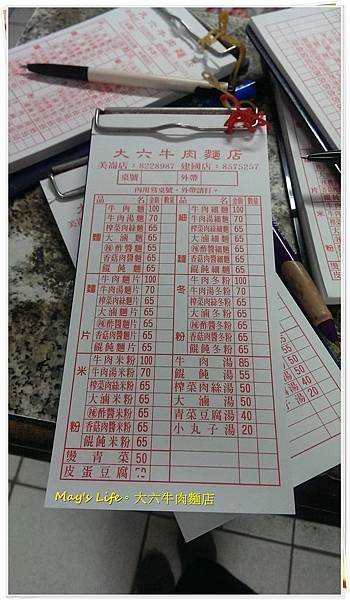 大六牛肉麵店
美崙店：8228987 建國店：8575257
桌號 外帶
內用寫桌號。外帶請打。
品名 金額 數量 品名 金額 數量
麵
牛肉麵 100
牛肉湯麵 70
榨菜肉絲麵 65
大滷麵 65
辣酢醬麵 65
香菇肉醬麵 65
餛飩麵 65
麵片
牛肉麵片 100
牛肉湯麵片 70
榨菜肉絲麵片 65
大滷麵片 65
辣酢醬麵片 65
香菇肉醬麵片 65
餛飩麵片 65
米粉
牛肉米粉 100
牛肉湯米粉 70
榨菜肉絲米粉 65
大滷米粉 65
辣酢醬米粉 65
香菇肉醬米粉 65
餛飩米粉 65
燙青菜 50
皮蛋豆腐
細麵
牛肉細麵 100
牛肉湯細麵 70
榨菜肉絲細麵 65
大滷細麵 65
辣酢醬細麵 65
香菇肉醬細麵 65
餛飩細麵 65
冬粉
牛肉冬粉 100
牛肉湯冬粉 70
榨菜肉絲冬粉 65
大滷冬粉 65
辣酢醬冬粉 65
香菇肉醬冬粉 65
餛飩冬粉 65
牛肉湯 85
餛飩湯 55
榨菜肉絲湯 50
大滷湯 50
青菜豆腐湯 40
小丸子湯 20
May's Life。大六牛肉麵店